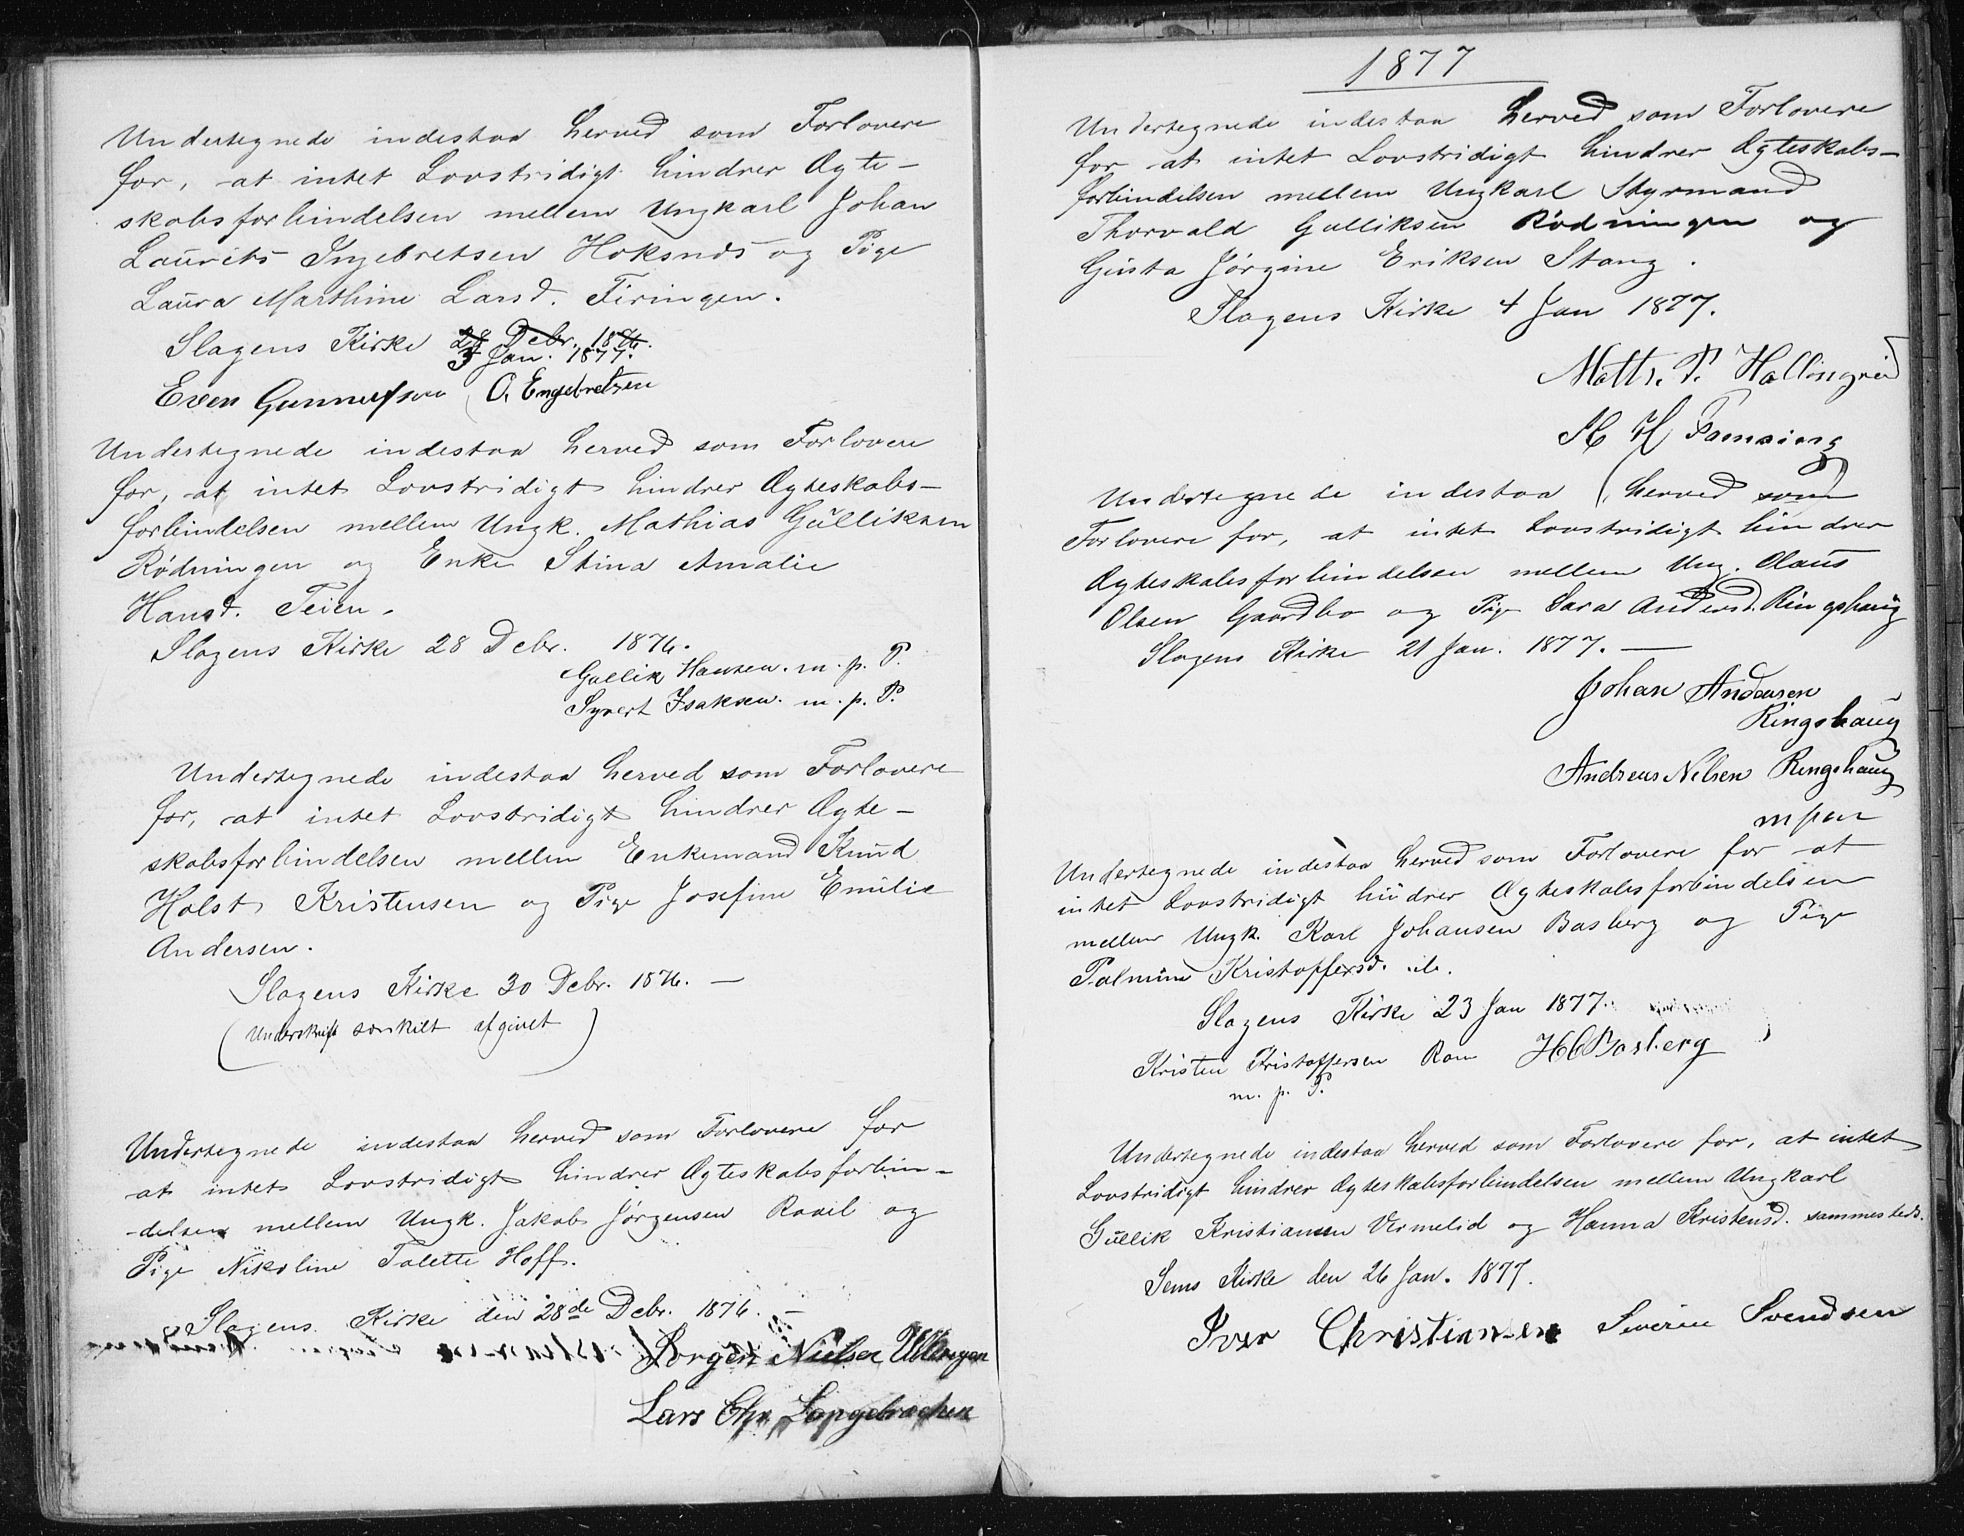 Undertegnede indestaa herved som Forlovere
for, at intet Lovstridigt hindrer Ægte-
skabsforbindelsen mellem Ungkarl Johan
Laurits Ingebretsen Hoksnds og Pige
Laura Marthine Larsd. Firingen.
Slagens Kirke 28 Debr. 1876.
3 Jan. 1877.
Even Gunnufsen O. Engebretsen
Undertegnede indestaa herved som Forlovere
for, at intet Lovstridigt hindrer Ægteskabs-
forbindelsen mellem Ungk. Mathias Gulliksen
Rødningen og Enke Stina Amalie
Hansd. Teien.
Slagens Kirke 28 Debr. 1876.
Gullik Hansen. m. p. P.
Syvert Isaksen. m. p. P.
Undertegnede indestaa herved som Forlovere
for, at intet Lovstridigt hindrer Ægte-
skabsforbindelsen mellem Enkemand Knud
Holst Kristensen og Pige Josefine Emilie
Andersen.
Slagens Kirke 30 Debr. 1876. -
(Underskrift særskilt afgivet)
Undertegnede indestaa herved som Forlovere for
at intet Lovstridigt hindrer Ægteskabsforbin-
-delsen mellem Ungk. Jakob Jørgensen Roael og
Pige Nikoline Talette Hoff.
Slagens Kirke den 28de Debr. 1876. -
Jørgen Nielsen
Lars Chr.
1877
Undertegnede indestaa herved som Forlovere
for at intet Lovstridigt hindrer Ægteskabs-
forbindelsen mellem Ungkarl Styrmand
Thorvald Gulliksen Rødningen og
Gusta Jørgine Eriksen Stang.
Slagens Kirke 4 Jan 1877.
Matts. P.
M H
Undertegnede indestaa herved som
Forlovere for, at intet Lovstridigt hindrer
Ægteskabsforbindelsen mellem Ung. Olaus
Olsen Gaardbo og Pige Sara Andersd. Ringshaug
Slagens Kirke 21 Jan. 1877. -
Johan Andersen
Ringshaug
Andreas Nilsen Ringshaug
mpen
Undertegnede indestaa herved som Forlovere for at
intet Lovstridigt hindrer Ægteskabsforbindelsen
mellem Ungk. Karl Johansen Basberg og Pige
Palmine Kristoffersd. ib.
Slagens Kirke 23 Jan 1877.
Kristen Kristoffersen Rom H C Basberg
m. p. P.
Undertegnede indestaa herved som Forlovere for, at intet
Lovstridigt hindrer Ægteskabsforbindelsen mellem Ungkarl
Gullik Kristiansen Virmelid og Hanna Kristensd. sammesteds.
Sems Kirke den 26 Jan. 1877.
Iver Christiansen Severin Svendsen